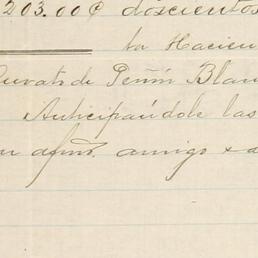 203.00¢ doscientos
ta Hacien
de Peñón Blan
Anticipándole las
afmo. amigo